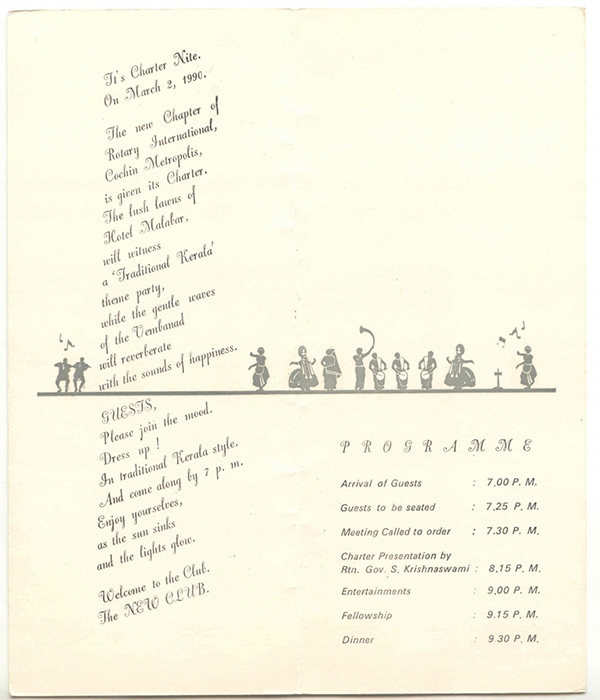 It's Charter Nite.
On March 2, 1990.
The new Chapter of
Rotary International,
Cochin Metropolis,
is given its Charter.
The lush lawns of
Hotel Malabar,
will witness
a 'Traditional Kerala'
theme party,
while the gentle waves
of the Vembanad
will reverberate
with the sounds of happiness.
GUESTS,
Please join the mood.
Dress up !
In traditional Kerala style.
And come along by 7 p. m.
Enjoy yourselves,
as the sun sinks
and the lights glow.
Welcome to the Club.
The NEW CLUB.
PROGRAMME
Arrival of Guests : 7.00 P. M.
Guests to be seated : 7.25 P. M.
Meeting Called to order : 7.30 P. M.
Charter Presentation by
Rtn. Gov. S. Krishnaswami : 8.15 P. M.
Entertainments : 9.00 P. M.
Fellowship : 9.15 P. M.
Dinner : 9.30 P. M.